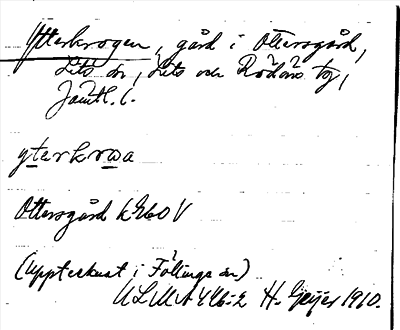 Ytterkrogen, gård i Ottersgård,
Lits sn, Lits och Rödöns tg,
Jämtl. l.
yterkrωa
Ottersgård kEbO V
(uppteknat i Föllinge sn)
ULMA 446:2 H. Geijer 1910.